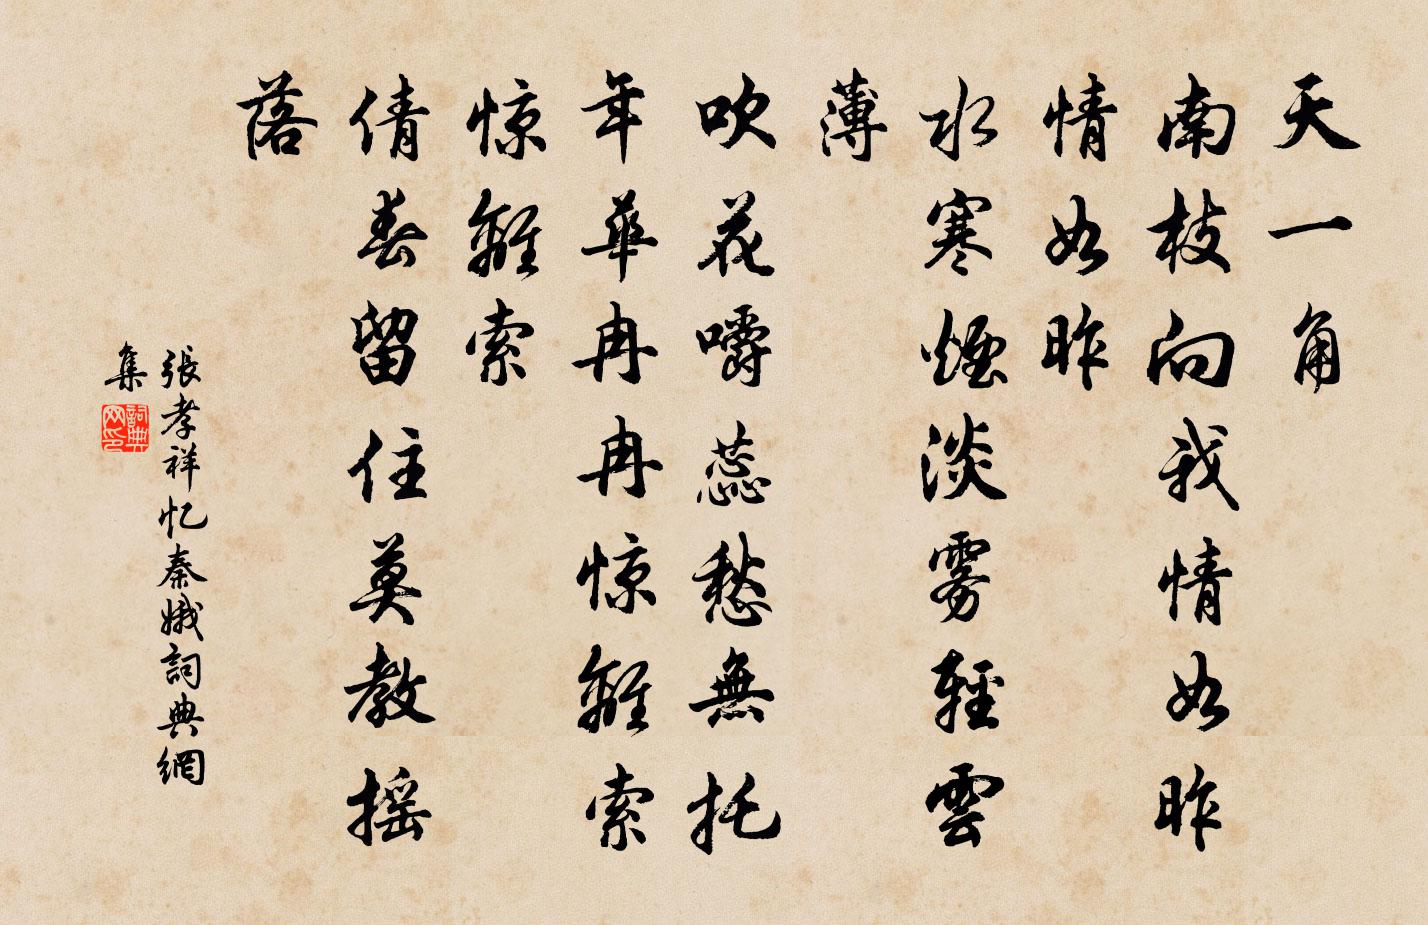 天一角
南枝向我情如昨
情如昨
水寒煙淡雾輕雲
薄
吹花嚼蕊愁無托
年華冉冉惊離索
惊離索
倩春留住莫教摇
落
張孝祥忆秦娥詞典網
集
詞典
网印